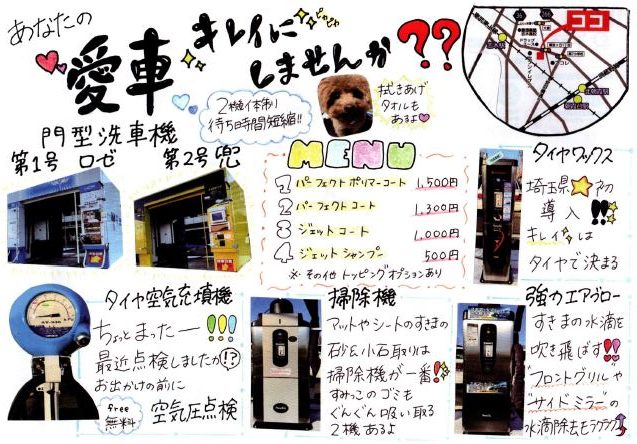 あなたの
愛車
キレイに
ピカピカ
しませんか??
2機体制
待ち時間短縮!!
拭きあげ
タオルも
あるよ
ココ
門型洗車機
第1号 ロゼ
第2号 兜
MENU
1 パーフェクトポリマーコート 1,500円
2 パーフェクトコート 1,300円
3 ジェットコート 1,000円
4 ジェットシャンプー 500円
※その他トッピングオプションあり
タイヤワックス
埼玉県初
導入!!
キレイは
タイヤで決まる
タイヤ空気充填機
ちょっとまったー!!!
最近点検しましたか!?
お出かけの前に
free
無料
空気圧点検
掃除機
マットやシートのすきまの
砂&小石取りは
掃除機が一番!!
すみっこのゴミも
ぐんぐん吸い取る
2機あるよ
強力エアブロー
すきまの水滴を
吹き飛ばす!!
"フロントグリル"や
"サイドミラー"の
水滴除去もラクラク